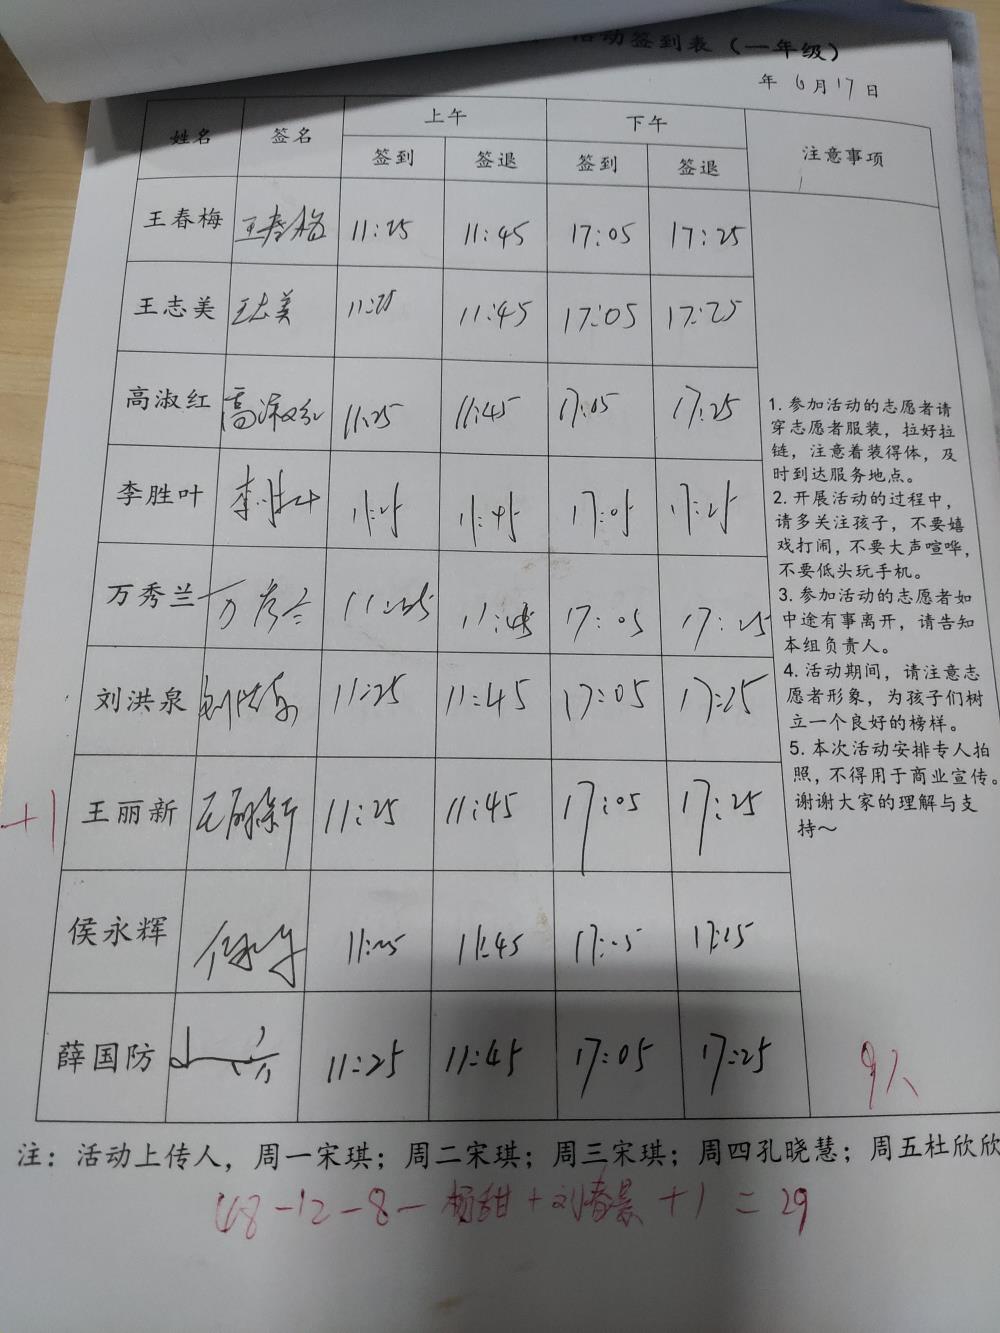 活动签到表（一年级）
年 6月17日
姓名 签名 上午 下午 注意事项
签到 签退 签到 签退
王春梅 王春梅 11:25 11:45 17:05 17:25
王志美 王志美 11:25 11:45 17:05 17:25
高淑红 高淑红 11:25 11:45 17:05 17:25
李胜叶 李胜叶 11:25 11:45 17:05 17:25
万秀兰 万秀兰 11:25 11:45 17:05 17:25
刘洪泉 刘洪泉 11:25 11:45 17:05 17:25
+1 王丽新 王丽新 11:25 11:45 17:05 17:25
侯永辉 侯永辉 11:25 11:45 17:05 17:25
薛国防 11:25 11:45 17:05 17:25
1. 参加活动的志愿者请
穿志愿者服装，拉好拉
链，注意着装得体，及
时到达服务地点。
2. 开展活动的过程中，
请多关注孩子，不要嬉
戏打闹，不要大声喧哗，
不要低头玩手机。
3. 参加活动的志愿者如
中途有事离开，请告知
本组负责人。
4. 活动期间，请注意志
愿者形象，为孩子们树
立一个良好的榜样。
5. 本次活动安排专人拍
照，不得用于商业宣传。
谢谢大家的理解与支
持～
9人
注：活动上传人，周一宋琪；周二宋琪；周三宋琪；周四孔晓慧；周五杜欣欣
48-12-8-杨甜+刘春晨+1=29